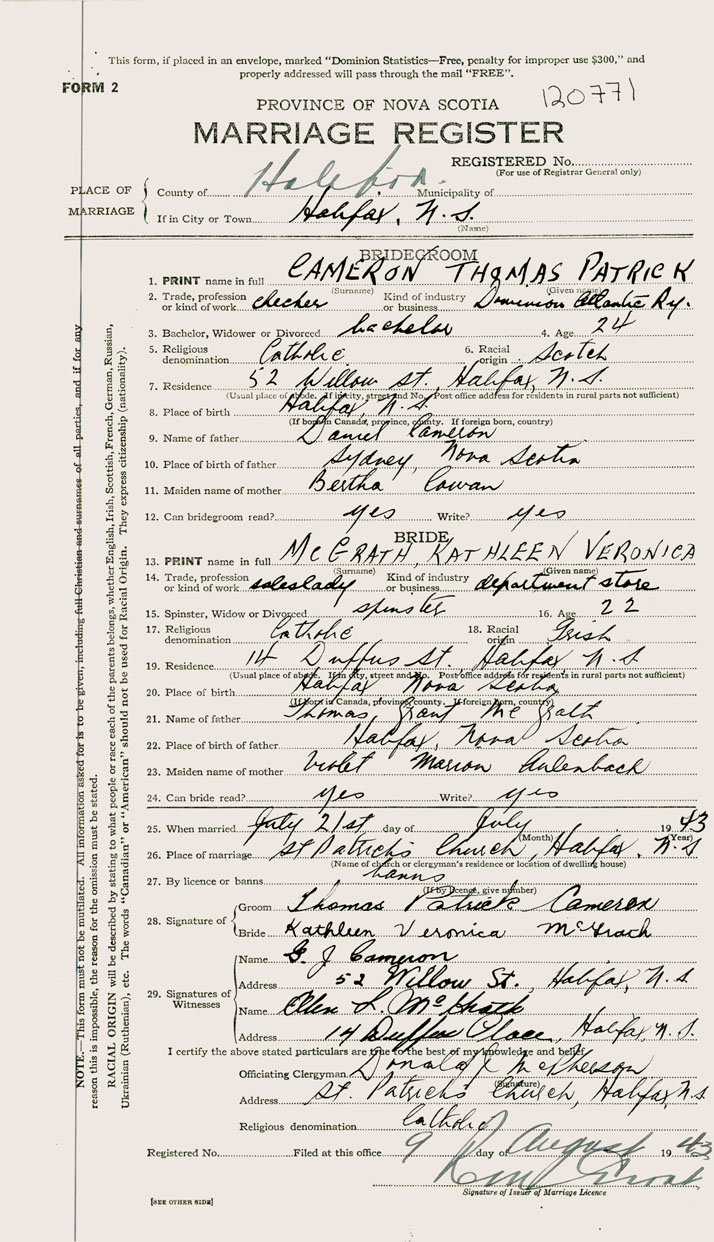 This form, if placed in an envelope, marked "Dominion Statistics—Free, penalty for improper use $300," and
properly addressed will pass through the mail "FREE".
FORM 2
120771
PROVINCE OF NOVA SCOTIA
MARRIAGE REGISTER
REGISTERED No.
(For use of Registrar General only)
PLACE OF MARRIAGE
County of Halifax. Municipality of
If in City or Town Halifax, N.S.
(Name)
BRIDEGROOM
1. PRINT name in full CAMERON THOMAS PATRICK
(Surname) (Given name)
2. Trade, profession or kind of work checker Kind of industry or business Dominion Atlantic Ry.
3. Bachelor, Widower or Divorced bachelor 4. Age 24
5. Religious denomination Catholic 6. Racial origin Scotch
7. Residence 52 Willow St., Halifax, N.S.
(Usual place of abode. If in city, street and No. Post office address for residents in rural parts not sufficient)
8. Place of birth Halifax, N.S.
(If born in Canada, province, county. If foreign born, country)
9. Name of father Daniel Cameron
10. Place of birth of father Sydney, Nova Scotia
11. Maiden name of mother Bertha Cowan
12. Can bridegroom read? yes Write? yes
BRIDE
13. PRINT name in full McGRATH, KATHLEEN VERONICA
(Surname) (Given name)
14. Trade, profession or kind of work saleslady Kind of industry or business department store
15. Spinster, Widow or Divorced spinster 16. Age 22
17. Religious denomination Catholic 18. Racial origin Irish
19. Residence 14 Duffus St. Halifax N.S
(Usual place of abode. If in city, street and No. Post office address for residents in rural parts not sufficient)
20. Place of birth Halifax Nova Scotia
(If born in Canada, province, county. If foreign born, country)
21. Name of father Thomas Grant McGrath
22. Place of birth of father Halifax, Nova Scotia
23. Maiden name of mother Violet Marion Aulenback
24. Can bride read? yes Write? yes
25. When married July 21st day of July 1943
(Month) (Year)
26. Place of marriage St Patrick's Church, Halifax, N.S
(Name of church or clergyman's residence or location of dwelling house)
27. By licence or banns banns
(If by licence, give number)
28. Signature of
Groom Thomas Patrick Cameron
Bride Kathleen Veronica McGrath
29. Signatures of Witnesses
Name G. J Cameron
Address 52 Willow St., Halifax, N.S
Name Ellen L. McGrath
Address 14 Duffus Place, Halifax, N.S.
I certify the above stated particulars are true to the best of my knowledge and belief.
Officiating Clergyman Donald McPherson
(Signature)
Address St. Patrick's Church, Halifax, N.S.
Religious denomination Catholic
Registered No. Filed at this office 9 day of August 1943
Signature of Issuer of Marriage Licence
[SEE OTHER SIDE]
NOTE.—This form must not be mutilated. All information asked for is to be given, including full Christian and surnames of all parties, and if for any
reason this is impossible, the reason for the omission must be stated.
RACIAL ORIGIN will be described by stating to what people or race each of the parents belongs, whether English, Irish, Scottish, French, German, Russian,
Ukrainian (Ruthenian), etc. The words "Canadian" or "American" should not be used for Racial Origin. They express citizenship (nationality).